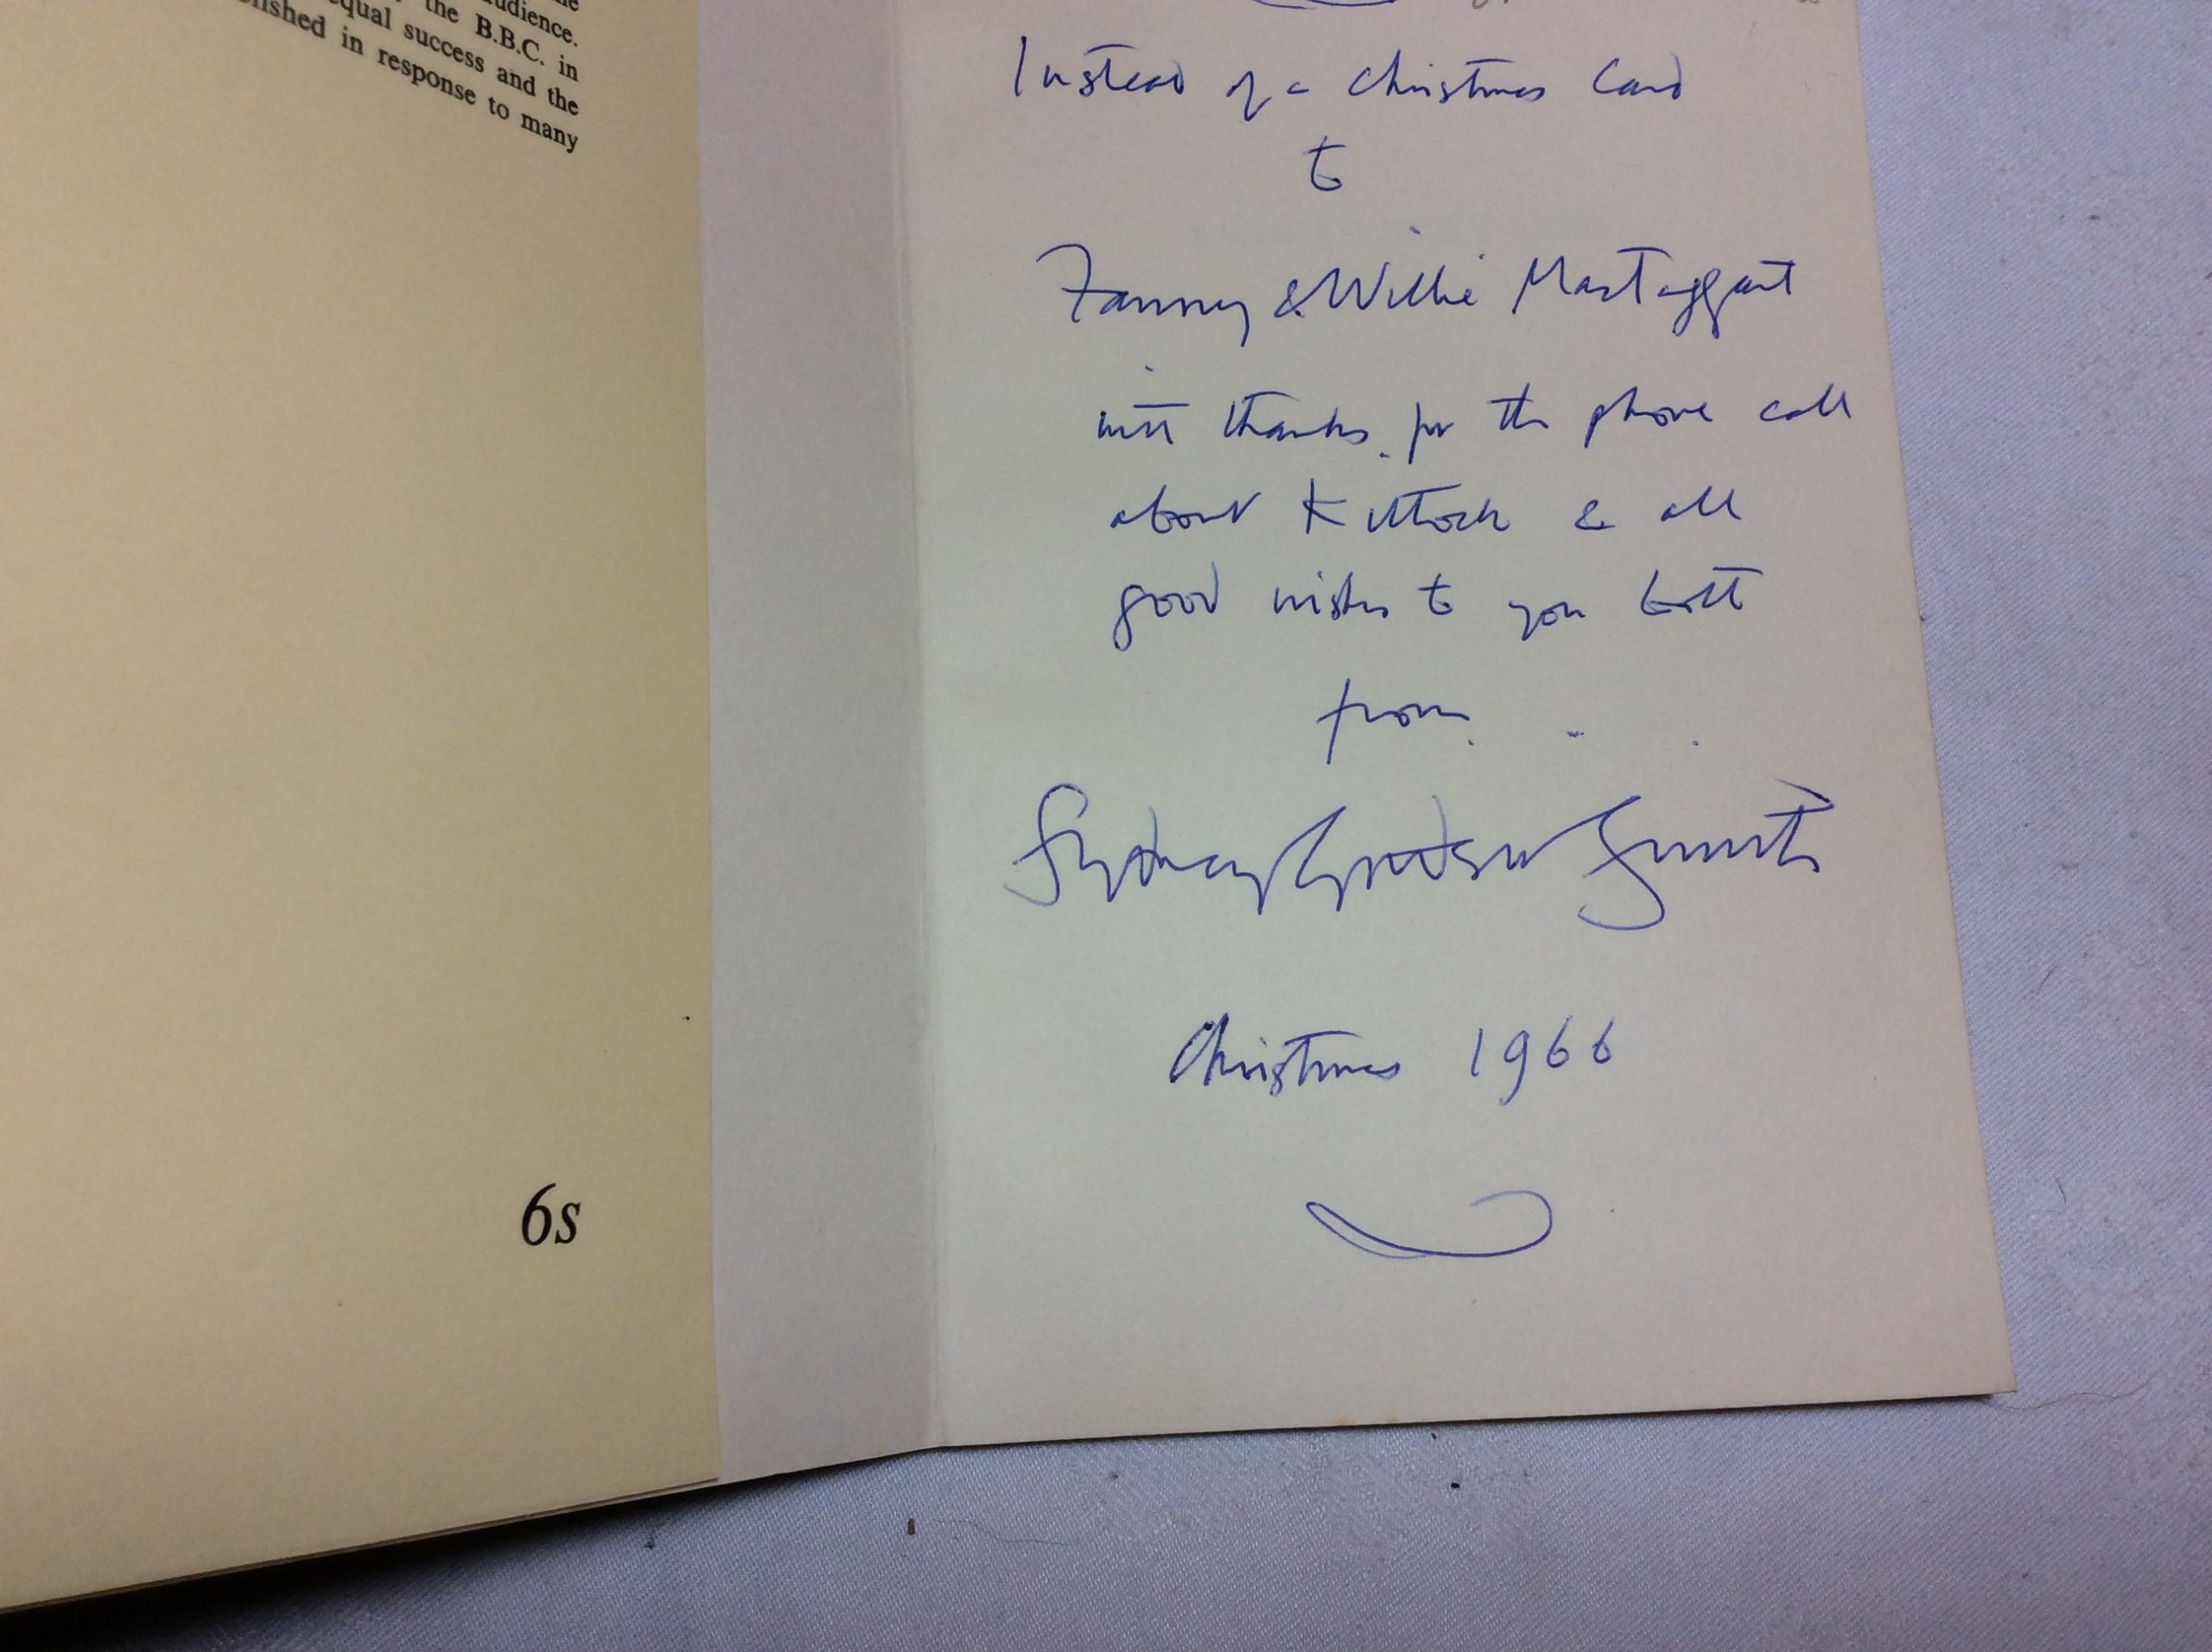 udience.
the B.B.C. in
equal success and the
lished in response to many
6s
Instead of a Christmas Card
to
Fanny & Willie Mactaggart
with thanks for the phone call
about Kittock & all
good wishes to you both
from
Sydney Goodsir Smith
Christmas 1966